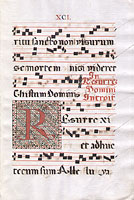 XCI.
ritu sancto non visurum
se mortem nisi videret
Christum Domini
In
Resurrec
Domini
Introit
R Esurre xi
tecum sum Alle lu ya